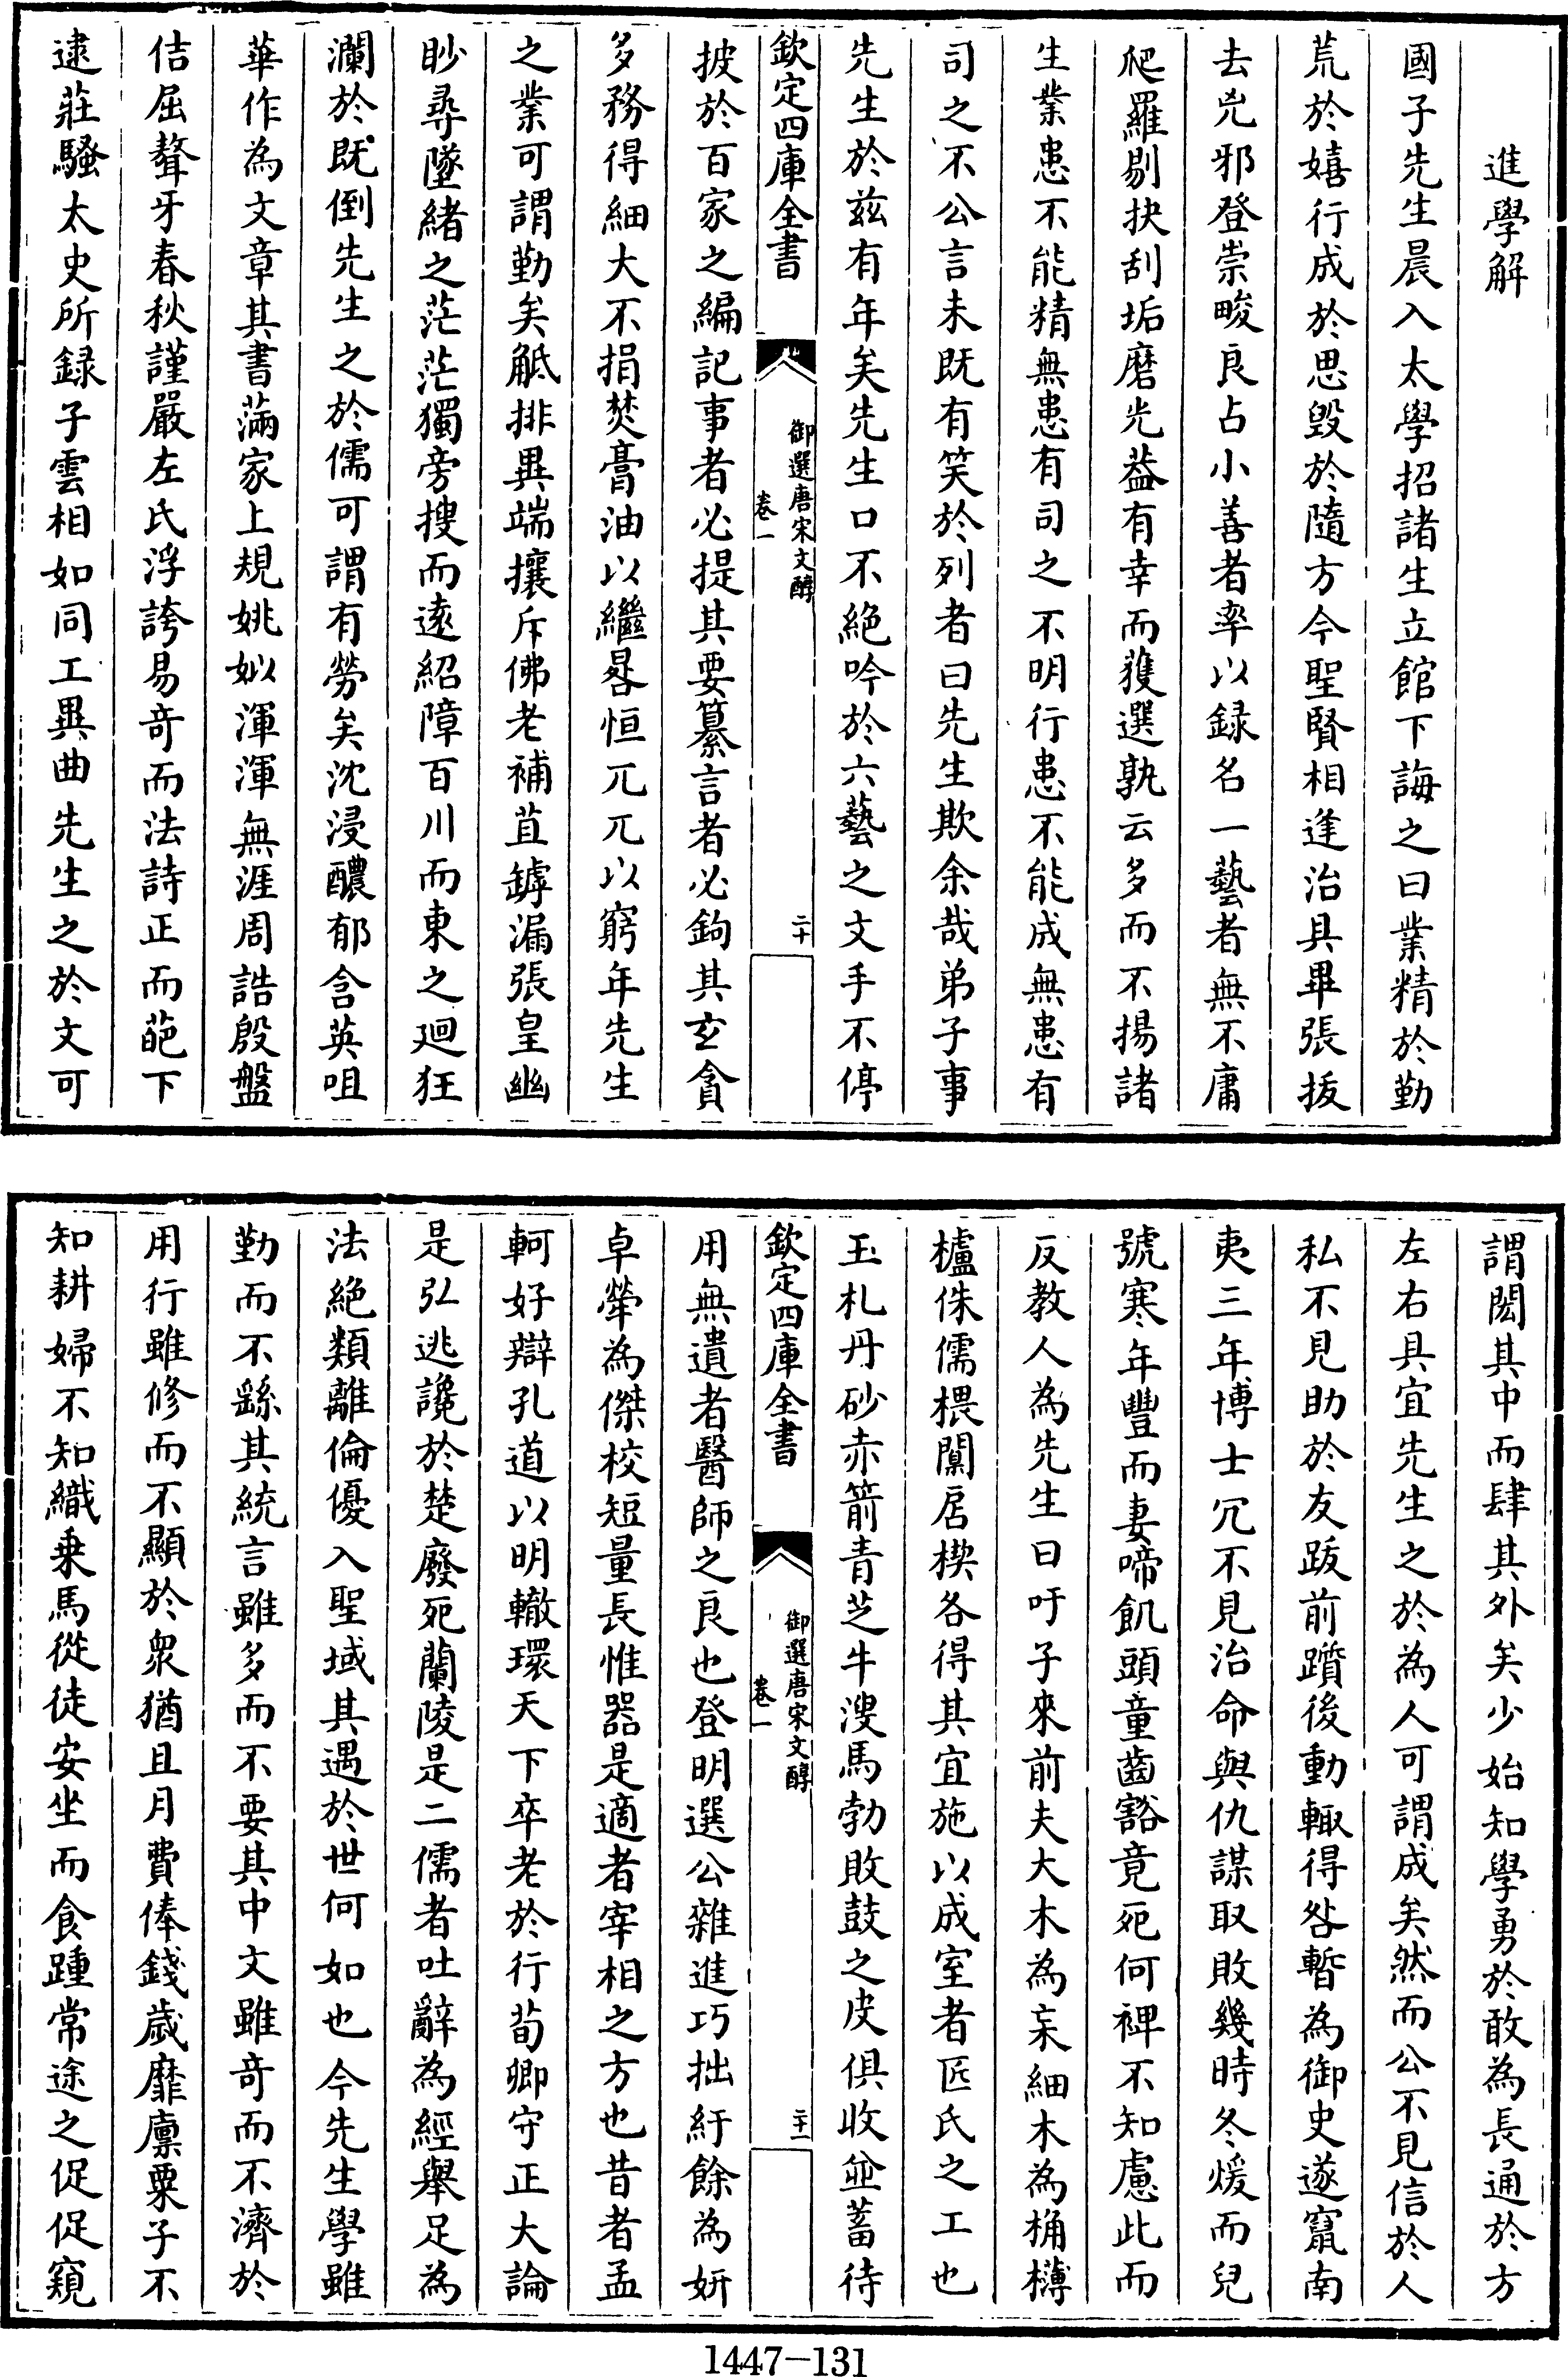 進學解
國子先生晨入太學招諸生立館下誨之曰業精於勤
荒於嬉行成於思毀於隨方今聖賢相逢治具畢張拔
去兇邪登崇畯良占小善者率以録名一藝者無不庸
爬羅剔抉刮垢磨光葢有幸而獲選孰云多而不揚諸
生業患不能精無患有司之不明行患不能成無患有
司之不公言未既有笑於列者曰先生欺余哉弟子事
先生於兹有年矣先生口不絶吟於六藝之文手不停
欽定四庫全書
御選唐宋文醇
卷一
二十
披於百家之編記事者必提其要纂言者必鉤其玄貪
多務得細大不捐焚膏油以繼晷恒兀兀以窮年先生
之業可謂勤矣觝排異端攘斥佛老補苴罅漏張皇幽
眇尋墜緒之茫茫獨旁搜而逺紹障百川而東之廻狂
瀾於既倒先生之於儒可謂有勞矣沈浸醲郁含英咀
華作為文章其書滿家上規姚姒渾渾無涯周誥殷盤
佶屈聱牙春秋謹嚴左氏浮誇易奇而法詩正而葩下
逮莊騷太史所録子雲相如同工異曲先生之於文可
謂閎其中而肆其外矣少始知學勇於敢為長通於方
左右具宜先生之於為人可謂成矣然而公不見信於人
私不見助於友跋前躓後動輒得咎暫為御史遂竄南
夷三年博士冗不見治命與仇謀取敗幾時冬煖而兒
號寒年豐而妻啼飢頭童齒豁竟死何裨不知慮此而
反教人為先生曰吁子來前夫大木為杗細木為桷欂
櫨侏儒椳闑扂楔各得其宜施以成室者匠氏之工也
玉札丹砂赤箭青芝牛溲馬勃敗鼓之皮俱收並蓄待
欽定四庫全書
御選唐宋文醇
卷一
二十一
用無遺者醫師之良也登明選公雜進巧拙紆餘為妍
卓犖為傑校短量長惟器是適者宰相之方也昔者孟
軻好辯孔道以明轍環天下卒老於行荀卿守正大論
是弘逃讒於楚廢死蘭陵是二儒者吐辭為經舉足為
法絶類離倫優入聖域其遇於世何如也今先生學雖
勤而不繇其統言雖多而不要其中文雖奇而不濟於
用行雖修而不顯於衆猶且月費俸錢歲靡廩粟子不
知耕婦不知織乗馬從徒安坐而食踵常途之促促窺
1447-131